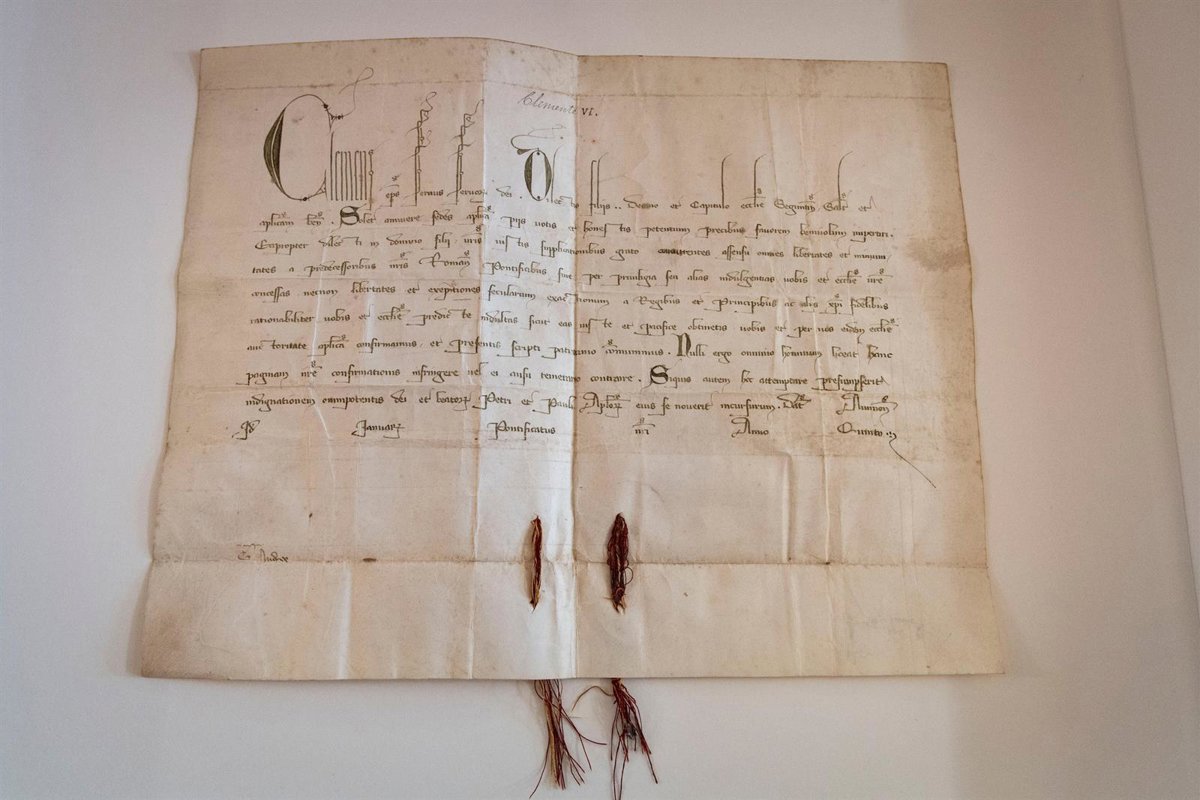 Clemente VI.
Clemens eps servus servoꝝ dei. Dilectis filijs.. Decano et Capitulo ecclie Seguntin Salt et
aplicam ben. Solet annuere sedes aplica pijs votis et honestis petentum precibus favorem benivolum impertiri.
Eapropter dilecti in domino filij vris iustis supplicationibus grato concurrentes assensu omnes libertates et immuni
tates a predecessoribus nris Roman Pontificibus sive per privilegia seu alias indulgentias vobis et ecclie vre
concessas necnon libertates et exemptiones secularium exactionum a Regibus et Principibus ac alijs xpi fidelibus
rationabiliter vobis et ecclie predicte indultas sicut eas iuste et pacifice obtinetis vobis et per vos eidem ecclie
auctoritate aplica confirmamus et presentis scripti patrocinio communimus. Nulli ergo omnino hominum liceat hanc
paginam nre confirmationis infringere vel ei ausu temerario contraire. Siquis autem hoc attemptare presumpserit
indignationem omnipotentis dei et beatoꝝ Petri et Pauli Aploꝝ eius se noverit incursurum. Dat Avinion
Id Januarꝝ Pontificatus nri Anno Quinto